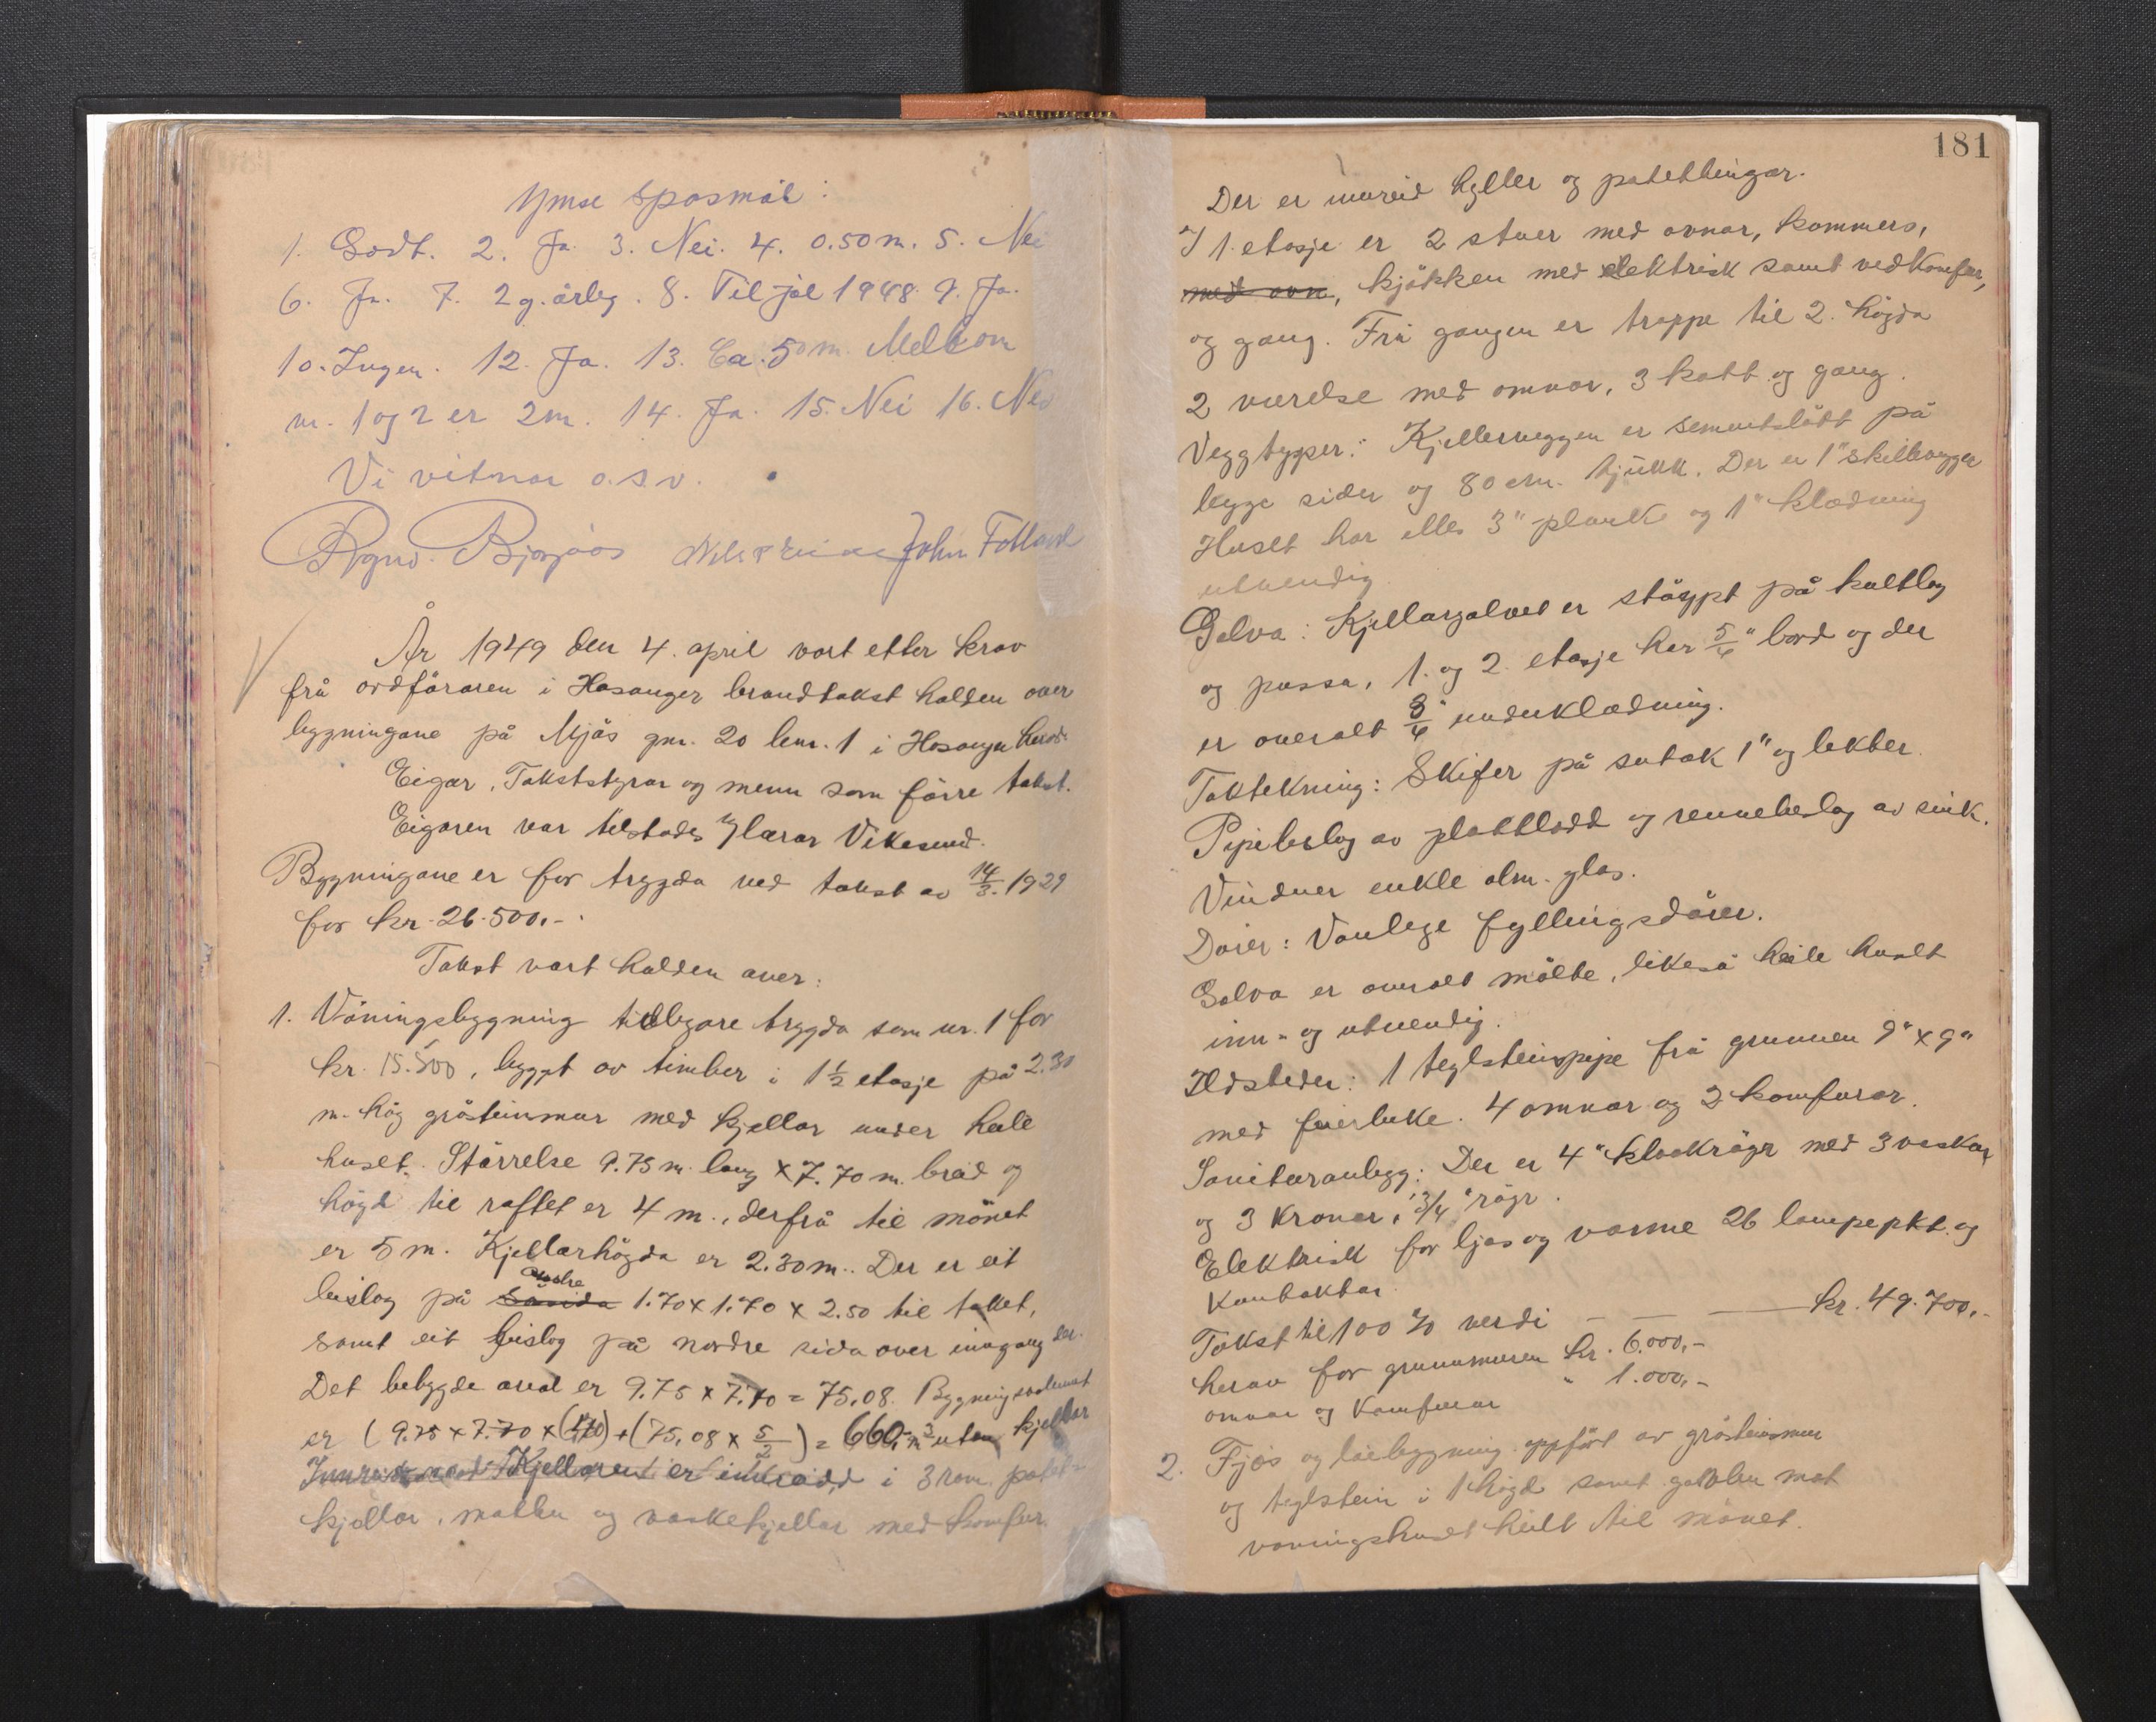 Ymse spösmål:
1. Godt. 2. Ja 3. Nei. 4. 0.50 m. 5. Nei
6. Ja. 7. 2 g. årleg. 8. Til jol 1948. 9. Ja.
10. Ingen. 12. Ja. 13. Ca. 50 m. Mellom
nr. 1 og 2 er 2 m. 14. Ja. 15. Nei 16. Nei
Vi vitnar o.s.v.
John Fotland
År 1949 den 4. april vart etter krav
frå ordföraren i Hosanger brandtakst halden over
bygningane på Mjös gnr. 20 bnr. 1 i Hosanger herad.
Eigar, Takststyrar og menn som förre takst.
Eigaren var tilstades lærar Vikesund.
Bygningane er för trygda ved takst av 14/3. 1929
for kr. 26.500,-.
Takst vart halden over:
1. Våningsbygning tidlegare trygda som nr. 1 for
kr. 15.500, bygt av timber i 1 1/2 etasje på 2.30
m. hög gråsteinmur med kjellar under heile
huset. Störrelse 9.75 m. lang x 7.70 m. breid og
högd til raftet er 4 m., derfrå til mönet
er 5 m. Kjellarhögda er 2.30 m. Der er eit
bislag på 1.70 x 1.70 x 2.50 til taket,
samt eit bislag på nordre sida over inngang der.
Det bebygde areal er 9.75 x 7.70 = 75.08. Bygningsvolumet
er (9.75 x 7.70 x + (75,08 x 5/2) = 660 m3 uten kjellar
Kjellaren er innreidd i 3 rom, potet-
kjellar, matbu og vaskekjellar med komfur.
181
Der er innreid hyller og potetbingar.
I 1. etasje er 2 stuer med ovnar, kammers,
med ovn, kjökken med elektrisk samt vedkomfur,
og gang. Frå gangen er trappe til 2. högda
2 værelse med omnar, 3 kott og gang.
Veggtyper: Kjellerveggen er sementslått på
begge sider og 80 cm. tjukk. Der er 1" skillevegger
Huset har elles 3" plank og 1" klædning
utvendig.
Golva: Kjellargolvet er stöypt på kultlag
og pussa, 1. og 2. etasje har 5/4" bord og der
er overalt underklædning.
Taktekning: Skifer på sutak 1" og lekter.
Pipebeslag av plattlodd og rennebeslag av sink.
Vinduer enkle alm. glas.
Dörer: Vanlege fyllingsdörer.
Golva er overalt målte, likeså heile huset
inn- og utvendig.
Ildsteder: 1 teglsteinspipe frå grunnen 9" x 9"
med feierluke. 4 omnar og 2 komfurar.
Sanitæranlegg: Der er 4" kloakröyr med 3 vaskar
og 3 kroner, 3/4" röyr.
Elektrisk for ljos og varme 26 lampepkt. og
Kontaktar.
Takst til 100 % verdi — — — kr. 49.700,-
herav for grunnmuren kr. 6.000,-
omnar og komfurar " 1.000,-
2. Fjös og löebygning oppfört av gråsteinsmur
og teglstein i 1 högd samt gavlen mot
våningshuset heilt til mönet.